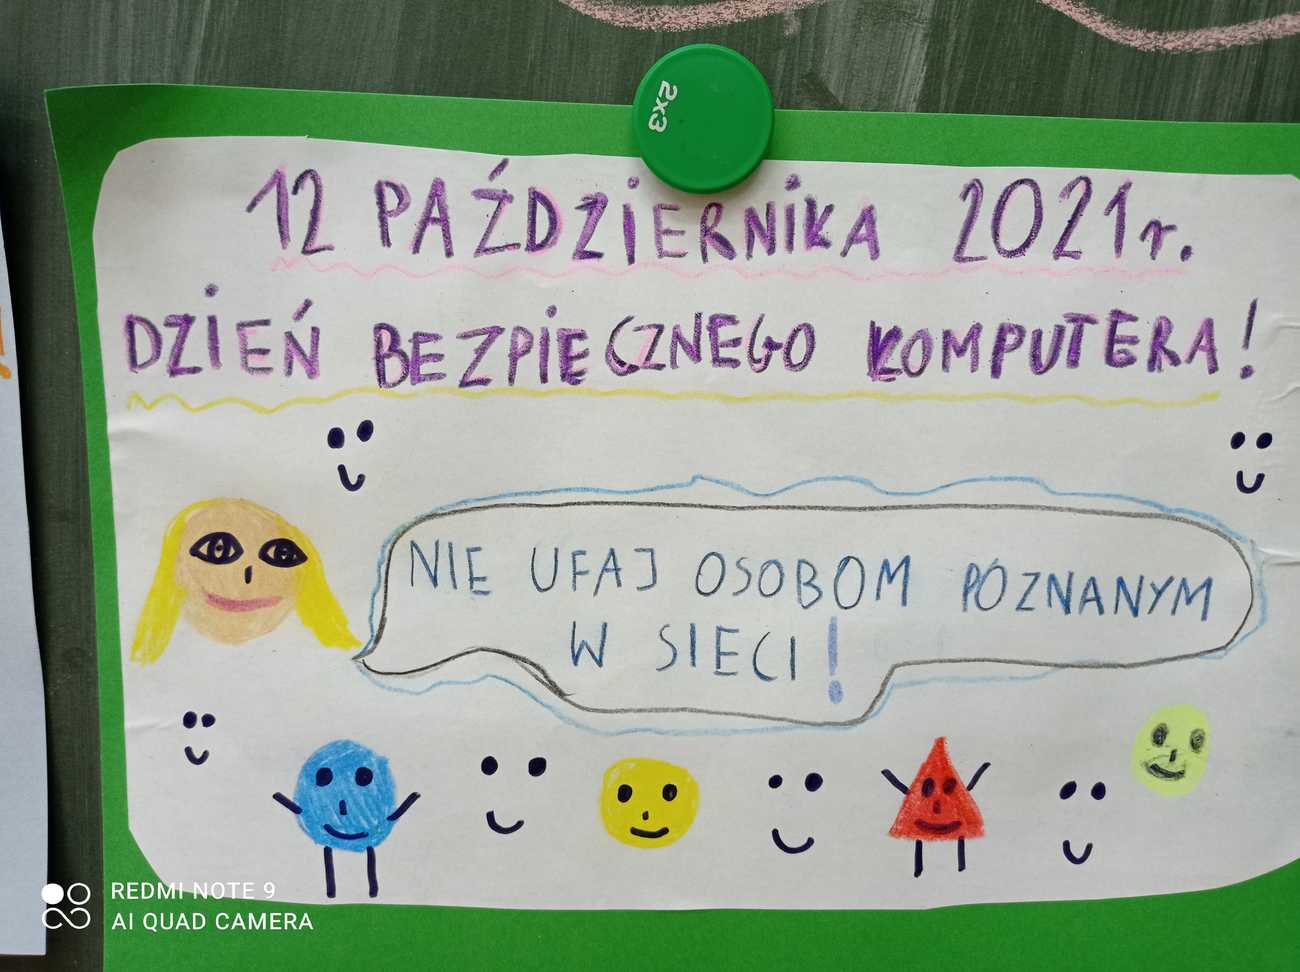 2x3
12 PAŹDZIERNIKA 2021r.
DZIEŃ BEZPIECZNEGO KOMPUTERA!
NIE UFAJ OSOBOM POZNANYM
W SIECI!
REDMI NOTE 9
AI QUAD CAMERA